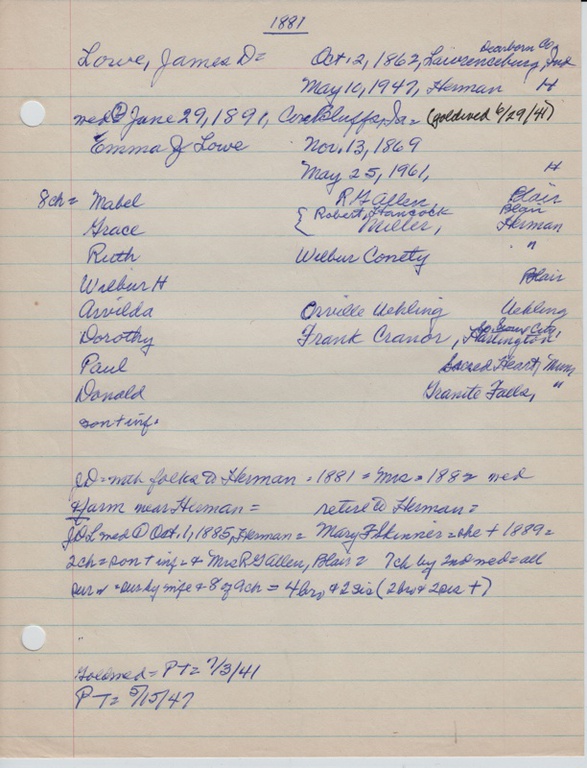 1881
Lowe, James D= Oct. 2, 1862, Lawrenceburg, Ind
Dearborn Co,
May 10, 1947, Herman H
wed ② June 29, 1891, Coun Bluffs, Ia= (goldwed 6/29/41)
Emma J Lowe Nov. 13, 1869
May 25, 1961, H
8ch= Mabel R G Allen Blair
Grace { Robert, Hancock Blair
Miller, Herman
Ruth Wilbur Conety "
Wilbur H Blair
Arvilda Orville Uehling Uehling
Dorothy Frank Cranor, So Sioux City,
Harlington
Paul Sacred Heart, Minn
Donald Granite Falls, "
son + inf.
JD= with folks to Herman = 1881 = Mrs = 1882 wed
& farm near Herman = retire to Herman =
JDL wed ① Oct. 1, 1885, Herman = Mary F Skinner = she + 1889 =
2ch = son + inf = & Mrs R G Allen, Blair = 7ch by 2nd wed = all
sur = sur by wife & 8 of 9ch = 4 bro & 2 sis (2 bro & 2 sis +)
Goldwed = PT = 7/3/41
PT = 5/15/47